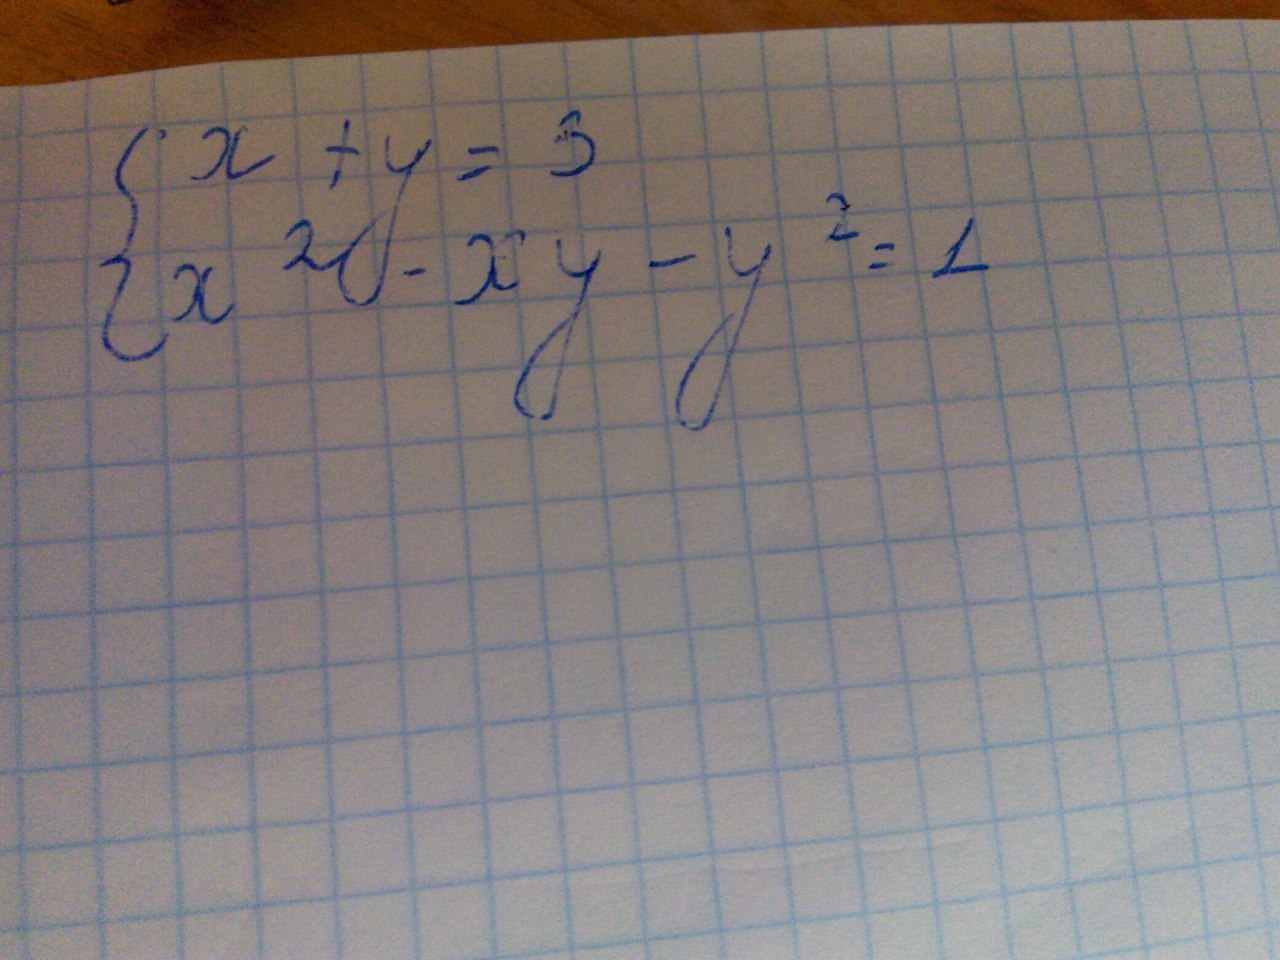 x + y = 3
x² - xy - y² = 1